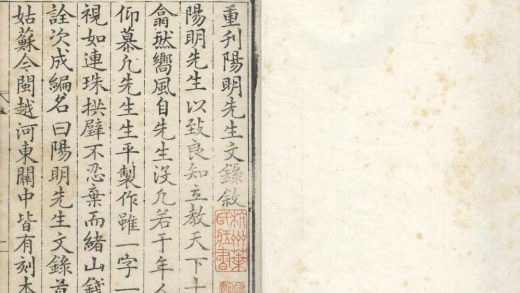 重刊陽明先生文錄敘
陽明先生以致良知立教天下士
翕然嚮風自先生沒凡若干年人
仰慕凡先生生平製作雖一字一
視如連珠拱璧不忍棄而緒山錢
詮次成編名曰陽明先生文錄首
姑蘇今閩越河東關中皆有刻本
杭州葉
氏藏書